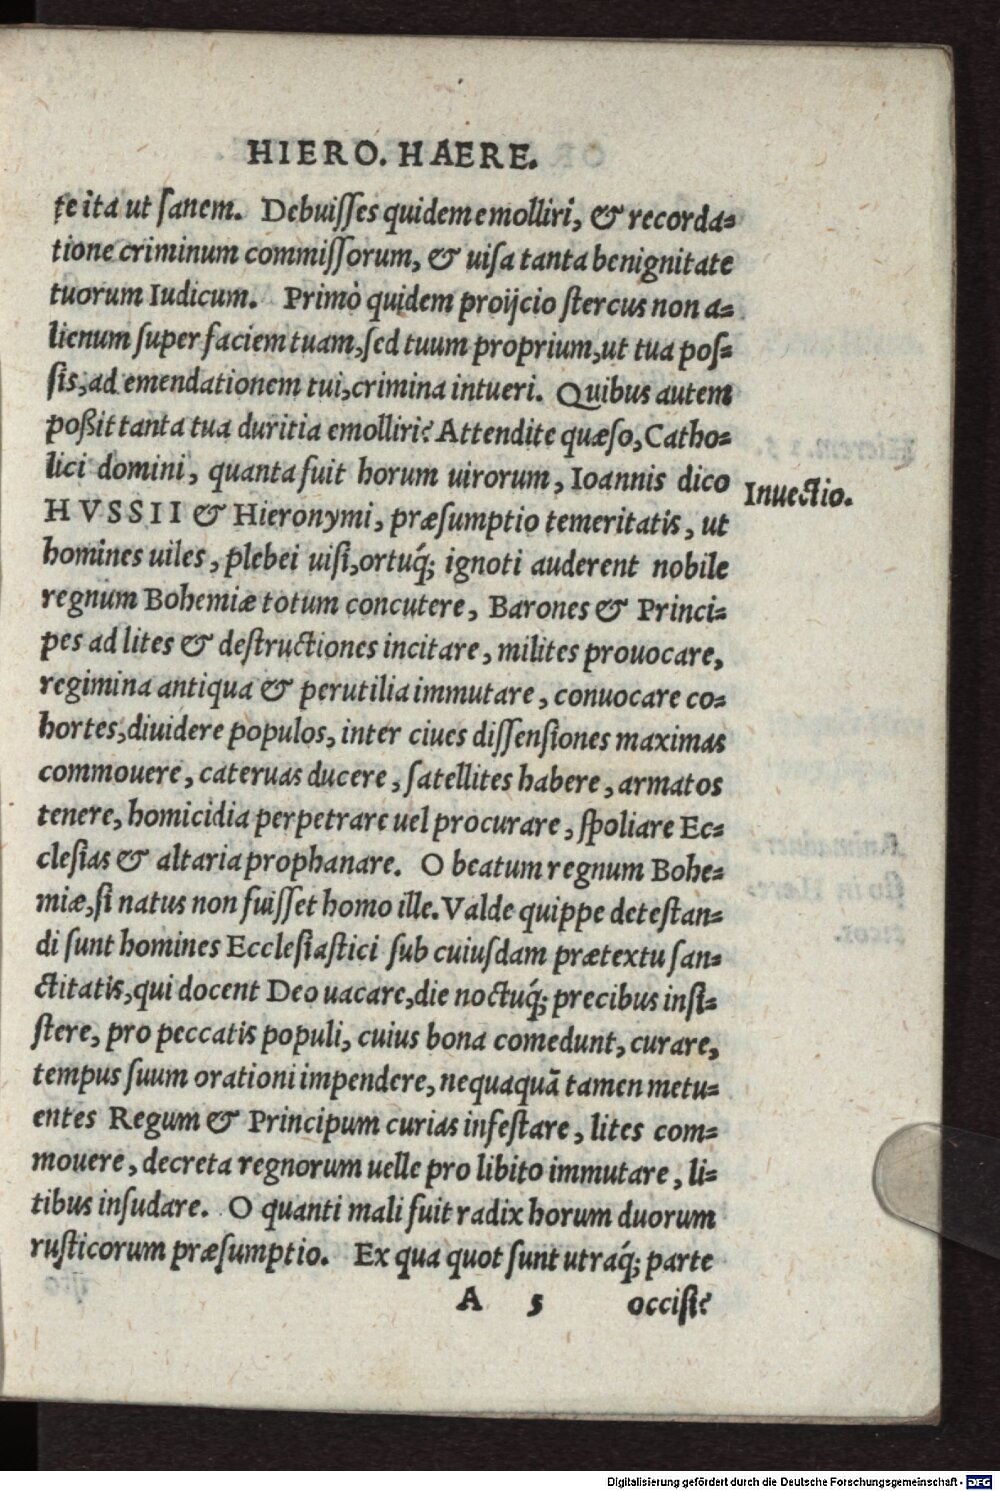 HIERO. HAERE.
te ita ut ſanem. Debuiſſes quidem emolliri, & recorda⸗
tione criminum commiſſorum, & uiſa tanta benignitate
tuorum Iudicum. Primò quidem proijcio ſtercus non a⸗
lienum ſuper faciem tuam, ſed tuum proprium, ut tua poſ⸗
ſis, ad emendationem tui, crimina intueri. Quibus autem
poßit tanta tua duritia emolliri? Attendite quæſo, Catho⸗
lici domini, quanta fuit horum uirorum, Ioannis dico
Inuectio.
HVSSII & Hieronymi, præſumptio temeritatis, ut
homines uiles, plebei uiſi, ortuq́; ignoti auderent nobile
regnum Bohemiæ totum concutere, Barones & Princi⸗
pes ad lites & deſtructiones incitare, milites prouocare,
regimina antiqua & perutilia immutare, conuocare co⸗
hortes, diuidere populos, inter ciues diſſenſiones maximas
commouere, cateruas ducere, ſatellites habere, armatos
tenere, homicidia perpetrare uel procurare, ſpoliare Ec⸗
cleſias & altaria prophanare. O beatum regnum Bohe⸗
miæ, ſi natus non fuiſſet homo ille. Valde quippe deteſtan⸗
di ſunt homines Eccleſiaſtici ſub cuiuſdam prætextu ſan⸗
ctitatis, qui docent Deo uacare, die noctuq́; precibus inſi⸗
ſtere, pro peccatis populi, cuius bona comedunt, curare,
tempus ſuum orationi impendere, nequaquã tamen metu⸗
entes Regum & Principum curias infeſtare, lites com⸗
mouere, decreta regnorum uelle pro libito immutare, li⸗
tibus inſudare. O quanti mali fuit radix horum duorum
ruſticorum præſumptio. Ex qua quot ſunt utraq́; parte
A 5 occiſi?
Digitalisierung gefördert durch die Deutsche Forschungsgemeinschaft - DFG